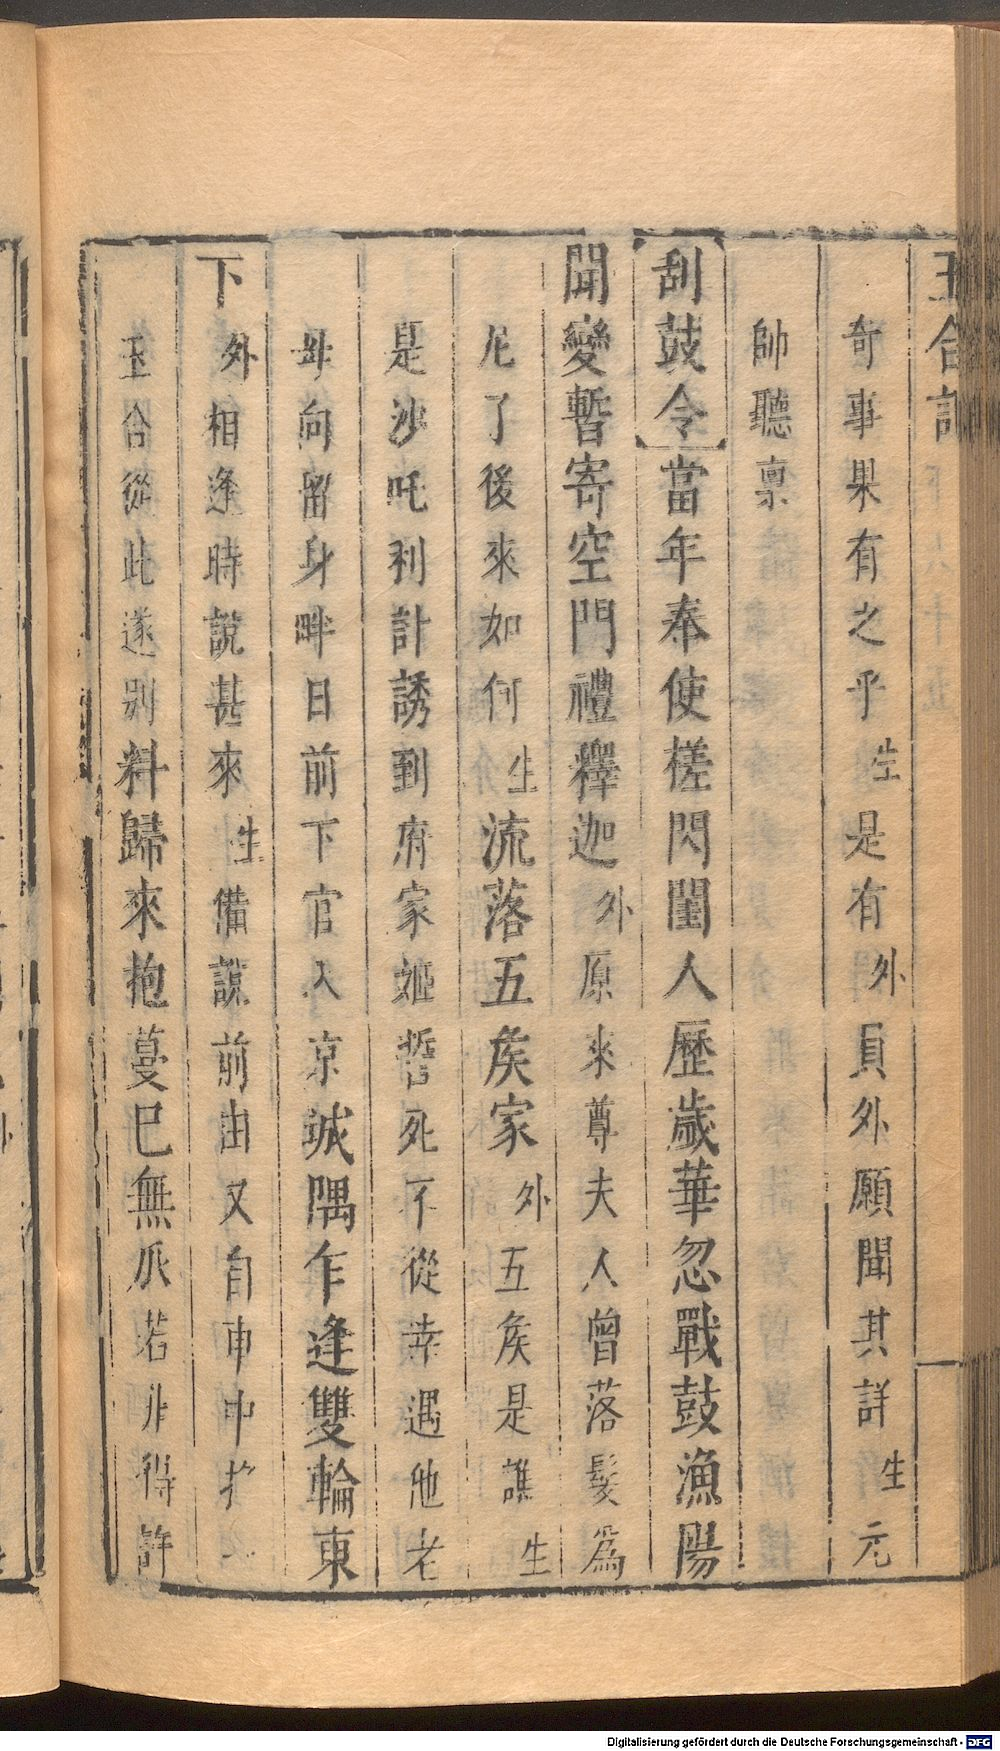 玉合記
奇事果有之乎生是有外員外願聞其詳生元
帥聽禀
刮鼓令當年奉使槎閃閨人歷歲華忽戰鼓漁陽
聞變暫寄空門禮釋迦外原來尊夫人曾落髮爲
尼了後來如何生流落五矦家外五矦是誰生
是沙吒利計誘到府家姬誓死不從幸遇他老
母向留身畔日前下官入京城隅乍逢雙輪東
下外相逢時説甚來生備説前由又自車中
玉合從此遂别料歸來抱蔓巳無瓜若非得許
Digitalisierung gefördert durch die Deutsche Forschungsgemeinschaft - DFG